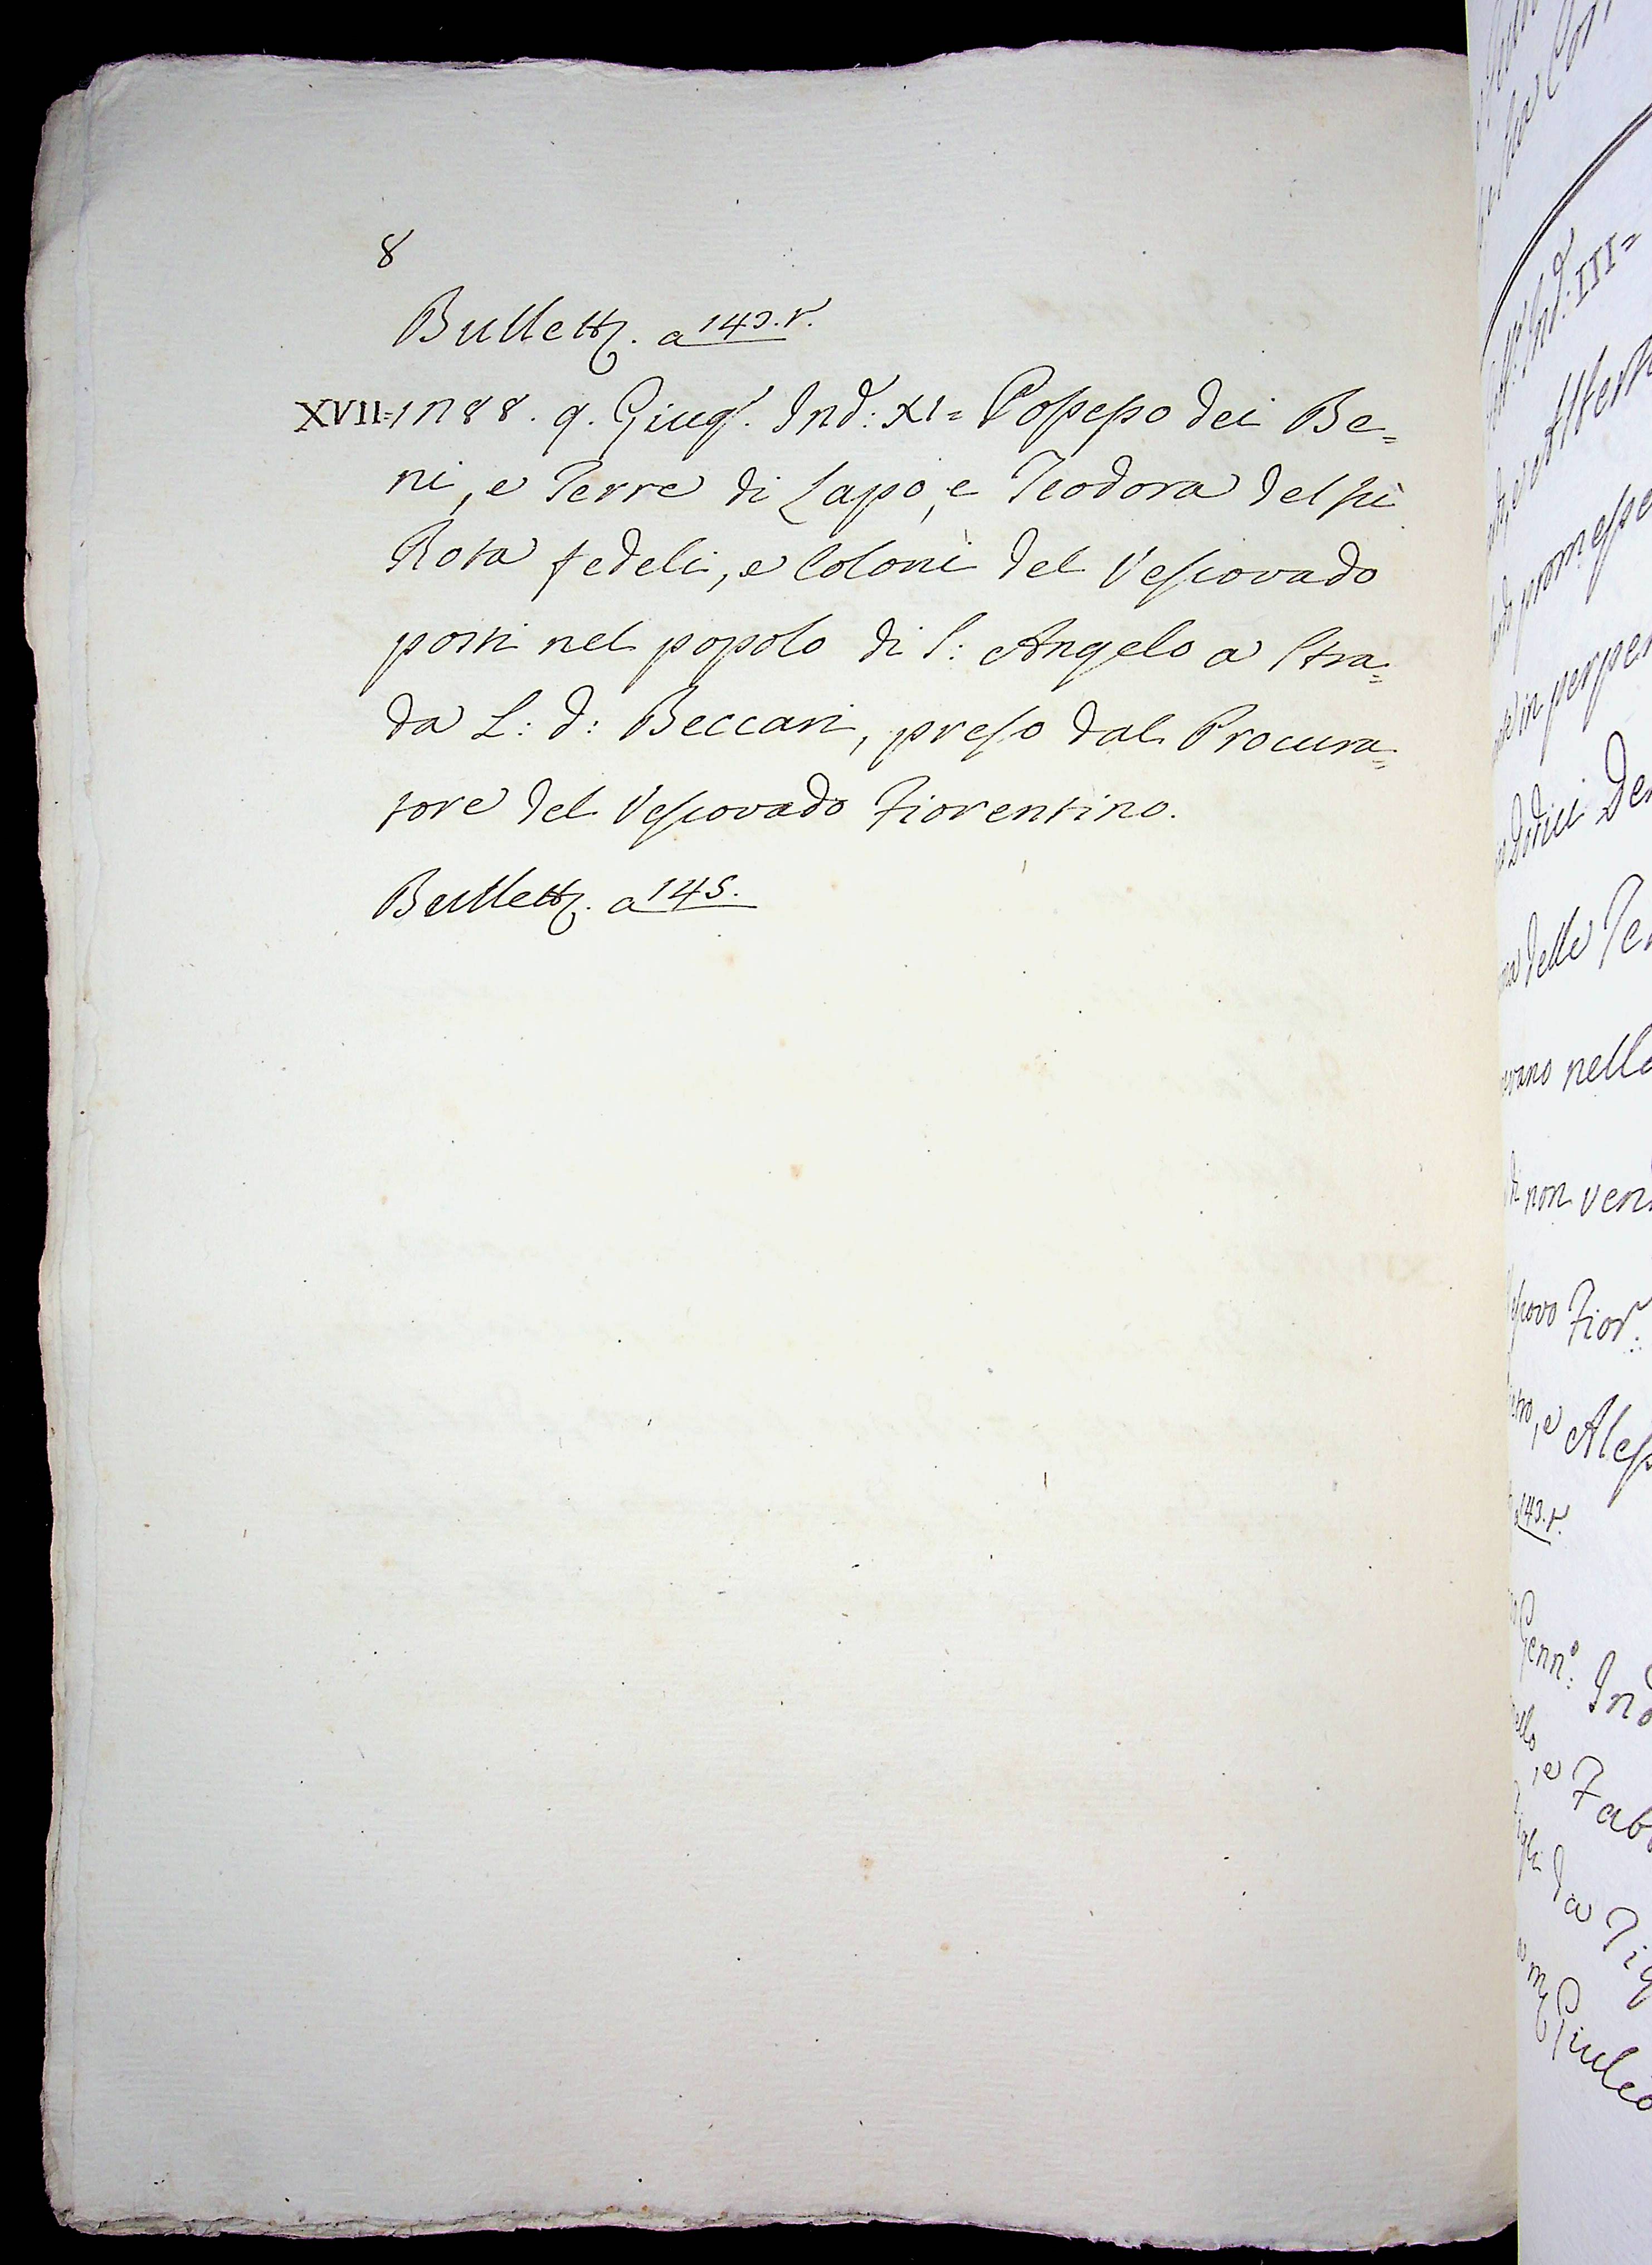 8
Bullett. a 143. r.
XVII=1288. 9. Giug. Ind: XI= Possesso dei Be=
ni, e Terre di Lapo, e Teodora del fù
Rota fedeli, e Coloni del Vescovado
posti nel popolo di S: Angelo a Stra=
da L: d: Beccari, preso dal Procura=
tore del Vescovado Fiorentino.
Bullett. a 145.
Ind: III=
promesse
in perpe
Dodici De
delle Te
nella
di non ven
Fior:
, e Aless
a 143. r.
Genn:o Ind
, e Fab
da
Giulio